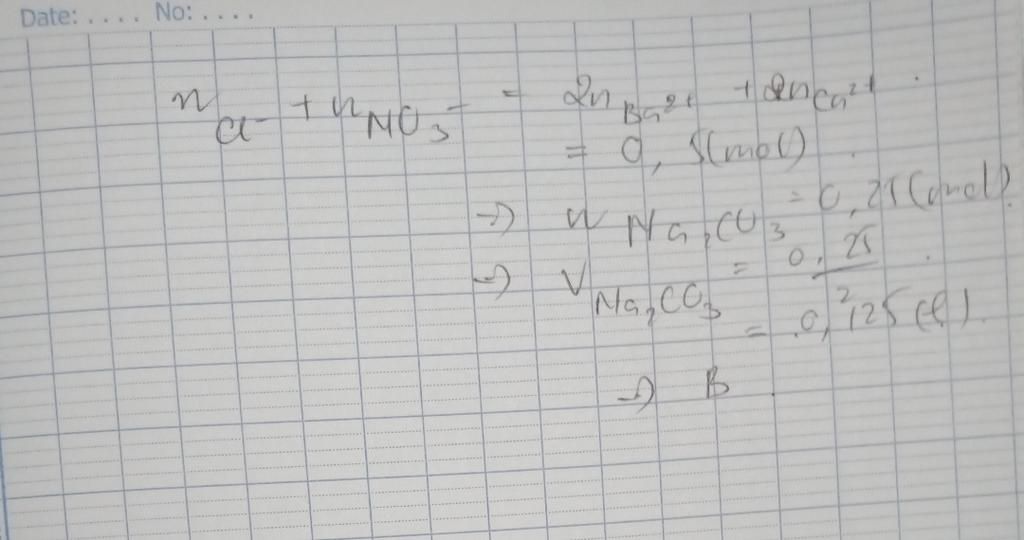 Date: .... No: ....
n Cl⁻ + n NO₃⁻ = 2n Ba²⁺ + 2n Ca²⁺.
= 0,5(mol).
→ n Na₂CO₃ = 0,25(mol).
→ V Na₂CO₃ = 0,25/2.
= 0,125(l).
→ B.